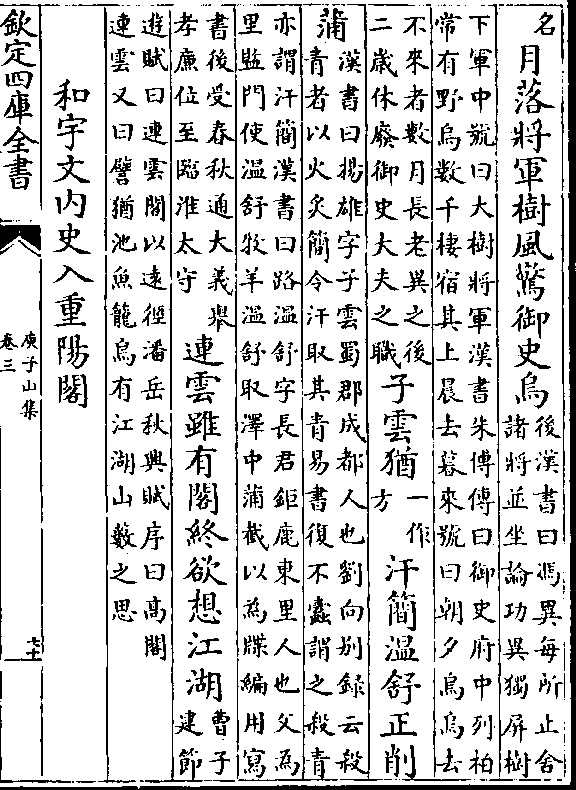 名月落將軍樹風驚御史烏後漢書曰馮異每所止舍
諸將並坐論功異獨屏樹
下軍中號曰大樹將軍漢書朱博傳曰御史府中列柏
常有野烏數千棲宿其上晨去暮來號曰朝夕烏烏去
不來者數月長老異之後
二歲休廢御史大夫之職子雲猶一作
方汗簡溫舒正削
蒲漢書曰揚雄字子雲蜀郡成都人也劉向别録云殺
青者以火炙簡令汗取其青易書復不蠹謂之殺青
亦謂汗簡漢書曰路溫舒字長君鉅鹿東里人也父為
里監門使溫舒牧羊溫舒取澤中蒲截以為牒編用寫
書後受春秋通大義舉
孝廉位至臨淮太守連雲雖有閣終欲想江湖曹子
建節
遊賦曰連雲閣以遠徑潘岳秋興賦序曰高閣
連雲又曰譬猶池魚籠鳥有江湖山藪之思
和宇文内史入重陽閣
欽定四庫全書
庾子山集
卷三